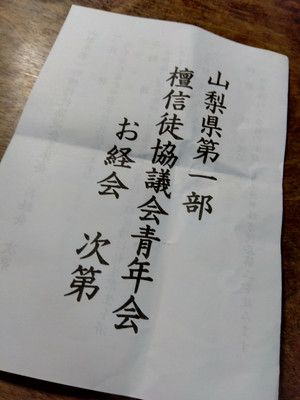 山梨県第一部
檀信徒協議会青年会
お経会
次第